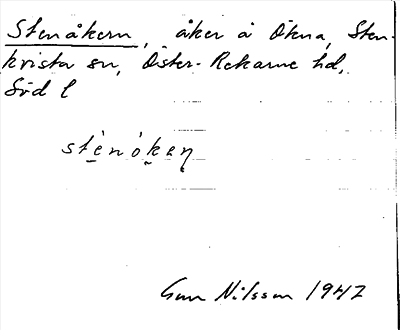 Stenåkern, åker å Ökna, Sten-
kvista sn, Öster-Rekarne hd,
Söd l
stènókaṇ
Gun Nilsson 1947